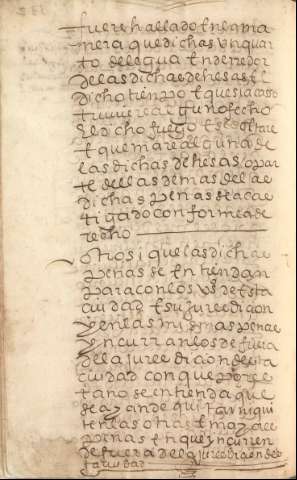 fuere hallado En la ma
nera que dichas Un quar
to de legua En derredor
de las dichas dehesas El
dicho tienpo E que si acaso
tuuiere alguno fecho
El dicho fuego E se soltare
E quemare alguna de
las dichas dehesas o par
te dellas demas de las
dichas penas sea cas
tigado conforme a de
recho
Otrosi que las dichas
penas se Entiendan
para con los Vs desta
ciudad E su juredizion
y en las mismas penas
yncurran los de fuera
de la juredizion desta
ciudad con que por es
to no se entienda que
se ayan de quitar ni qui
ten las otras E mayores
penas En que yncurren
de fuera de la juredizion des
ta ciudad